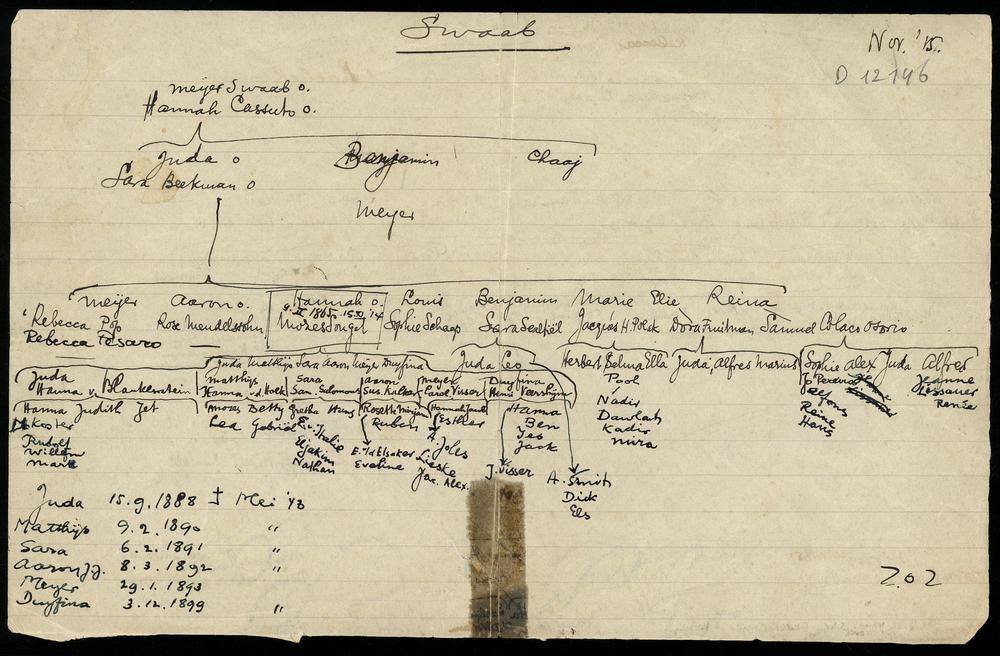 Swaab
Nov. '15.
D 12746
Meyer Swaab o.
Hannah Cassuto o.
Juda o Benjamin Chaaj
Sara Beekman o
Meyer
Meyer Aaron o. Hannah o. Louis Benjamin Marie Elie Reina
Rebecca Pop Rose Mendelssohn Mozes Sophie Schaap Sara Jacques H. Polak Dora Fruitman Samuel Colaco Osorio
Rebecca Pesaro
Juda Matthijs Sara Aaron Meyer Duyfina Juda Leo Herbert Selma Ella Juda, Alfred Marius Sophie Alex Juda Alfred
Juda
Hanna v. Blankenstein
Matthijs Sara Aaron Meyer Duyfina
Hanna v.d. Hoek San. Salomons Sus. Kalker Carol. Visser Henri
Hanna Judith Jet Mozes Betty Gretha Hans Rosette Mirjam Hannah Hanna
Koster Lea Gabriel Ruben Esther Ben
Rudolf Leo
Willem Jack
Mark
Eljakim
Nathan
Eveline
A. Joles
Lieske
Jac. Alex.
J. Visser
A. Smit
Dick
Els
Pool
Nadir
Dawlat
Kadir
Mira
Alfons
Reine
Hans
Jeanne
Lissauer
Renée
Juda 15.9.1888 ‡ Mei '43
Matthijs 9.2.1890 "
Sara 6.2.1891 "
Aaron J.J. 8.3.1892 "
Meyer 29.1.1893
Duyfina 3.12.1899 "
Z.O.Z